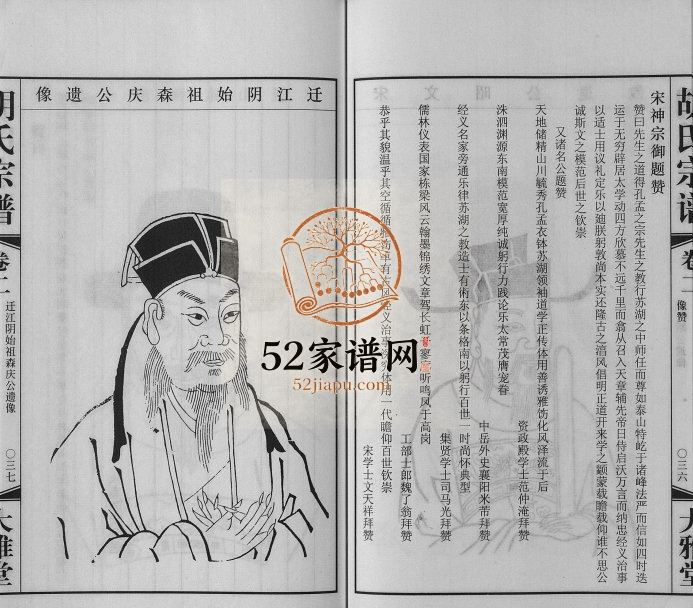 胡氏宗谱
卷二
像赞
〇三六
大雅堂
宋神宗御题赞
赞曰先生之道得孔孟之宗先生之教行苏湖之中师任而尊如泰山特屹于诸峰法严而信如四时迭
运于无穷辟居太学动四方欣慕不远千里而翕从召入天章辅先帝日侍启沃万言而纳忠经义治事
以适士用议礼定乐以廸朕躬敦尚本实还隆古之淳风倡明正道开来学之颛蒙载瞻载仰谁不思公
诚斯文之模范后世之钦崇
又诸名公题赞
天地储精山川毓秀孔孟衣钵苏湖领袖道学正传体用善诱雅饬化风泽流于后
资政殿学士范仲淹拜赞
洙泗渊源东南模范宽厚纯诚躬行力践论乐太常茂膺宠眷
中岳外史襄阳米芾拜赞
经义名家旁通乐律苏湖之教造士有術东以条格南以躬行百世一时尚怀典型
集贤学士司马光拜赞
儒林仪表国家栋梁风云翰墨锦绣文章驾长虹 寥 听鸣凤于高岗
工部士郎魏了翁拜赞
恭乎其貌温乎其空循循雅 有 经义治事 体用一代瞻仰百世钦崇
宋学士文天祥拜赞
迁江阴始祖森庆公遗像
胡氏宗谱
卷二
迁江阴始祖森庆公遗像
〇三七
大雅堂
52家谱网
52jiapu.com